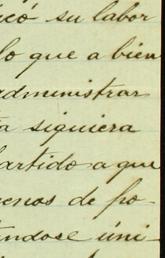 icó su labor
lo que a bien
administrar
a siguiera
partido a que
enos de po-
éndose úni-